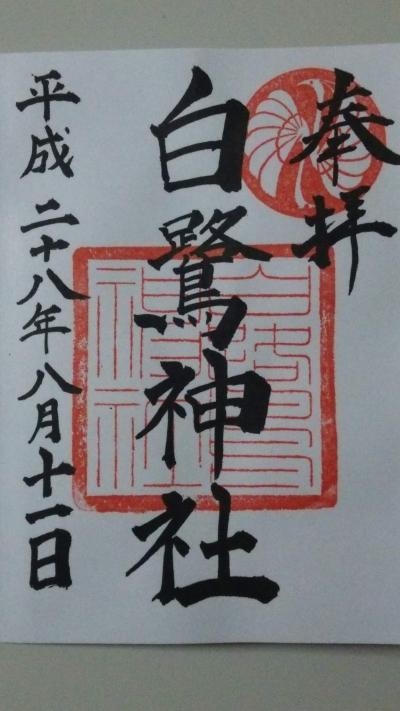 奉拝
白鷺神社
平成二十八年八月十一日
白鷺神社